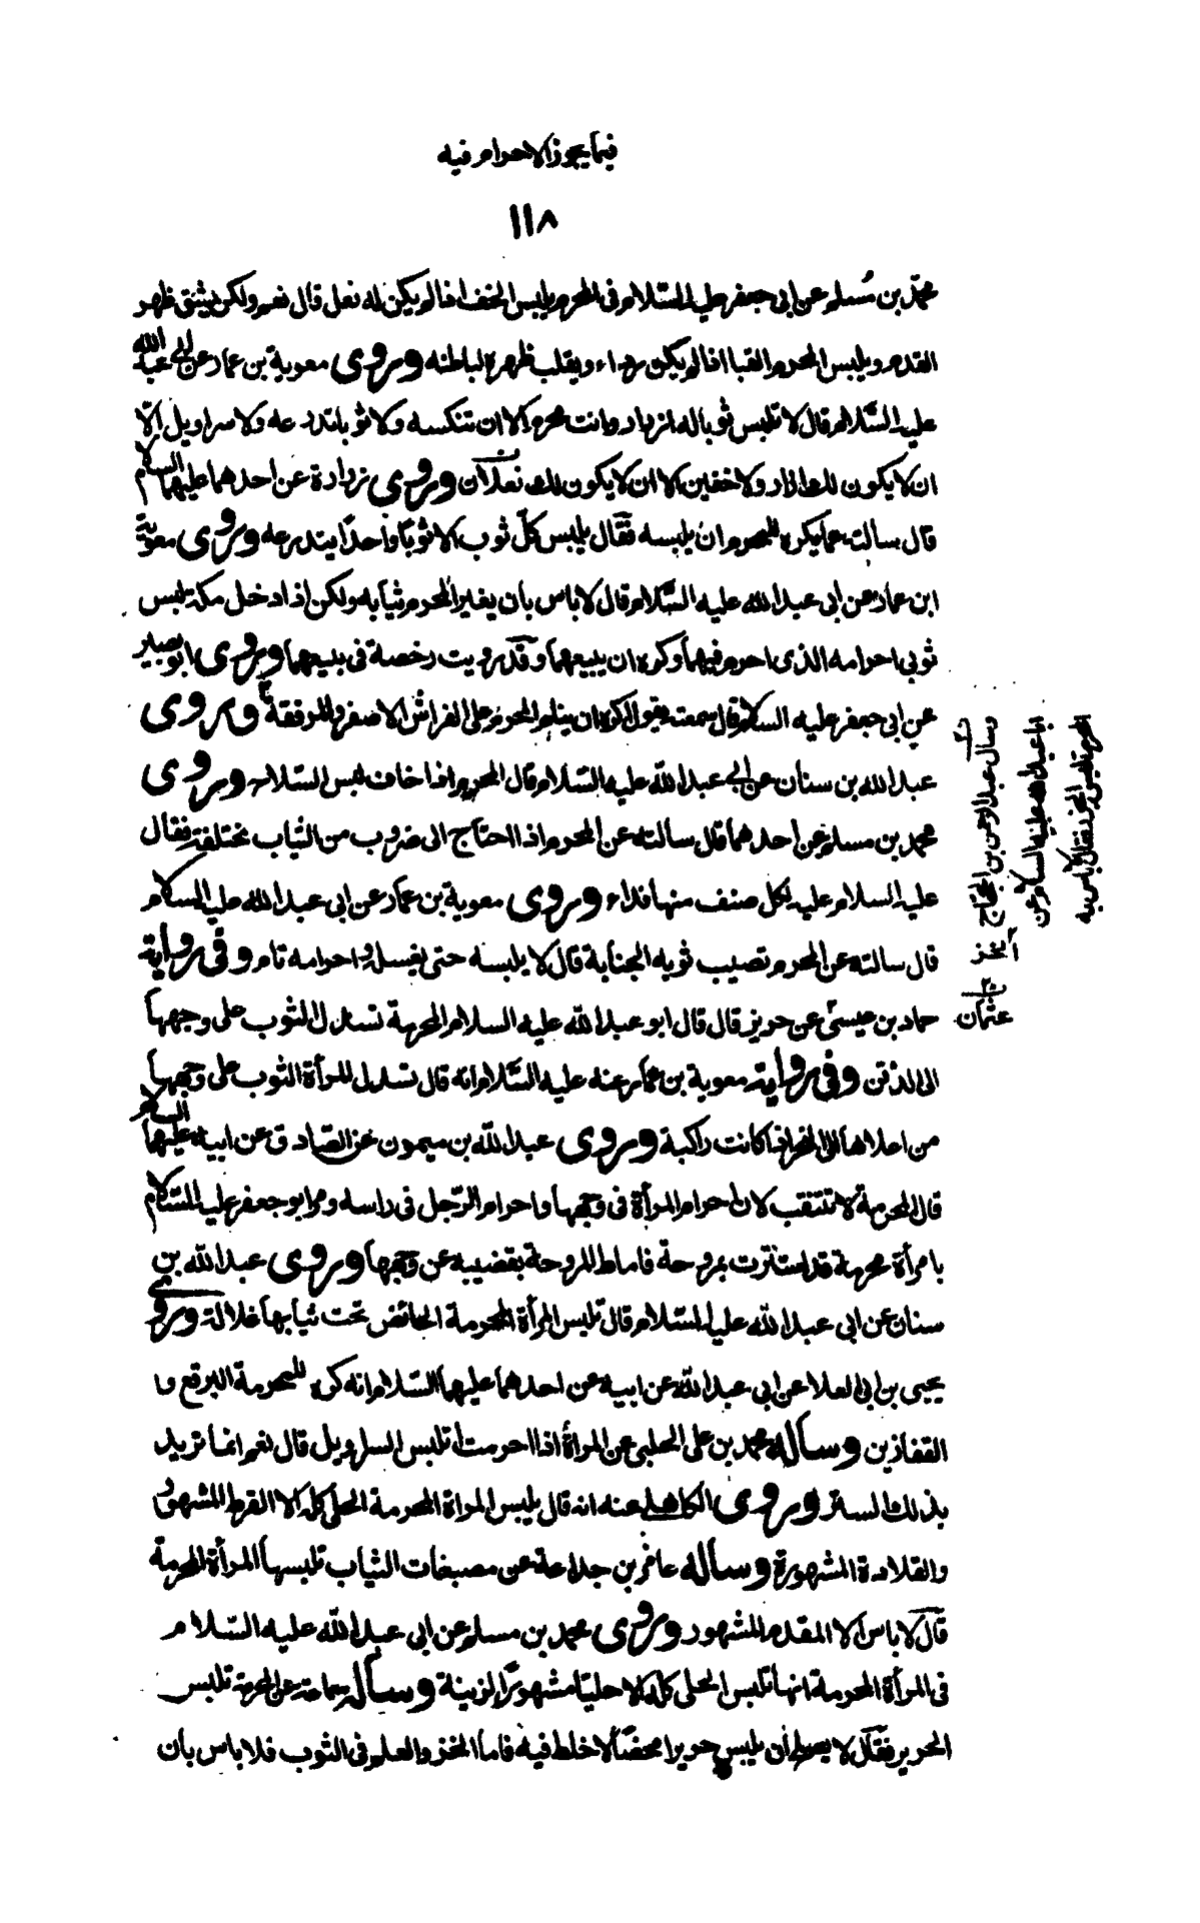 فيما يجوز الاحرام فيه
١١٨
محمد بن مسلم عن ابى جعفر عليه السلام فى المحرم يلبس الخف اذا لم يكن له نعل قال نعم ولكن يشق ظهر
القدم ويلبس المحرم القبا اذا لم يكن رداء ويقلب ظهره لباطنه وروى معوية بن عمار عن ابى عبد الله
عليه السلام قال لا تلبس ثوبا له ازرار وانت محرم الا ان تنكسه ولا ثوبا تدرعه ولا سراويل الا
ان لا يكون لك ازار ولا خفين الا ان لا يكون لك نعلان وروى زرارة عن احدهما عليهما السلام
قال سالته عما يكره للمحرم ان يلبسه فقال يلبس كل ثوب الا ثوبا واحدا يتدرعه وروى معوية
ابن عمار عن ابى عبد الله عليه السلام قال لا باس بان يغير المحرم ثيابه ولكن اذا دخل مكة لبس
ثوبى احرامه الذى احرم فيهما وكره ان يبيعهما وقد رويت رخصة فى بيعهما وروى ابو بصير
عن ابى جعفر عليه السلام قال سمعته يقول اكره ان ينام المحرم على الفراش الاصفر والمرفقة وروى
عبد الله بن سنان عن ابى عبد الله عليه السلام قال المحرم اذا خاف لبس السلاح وروى
محمد بن مسلم عن احدهما قال سالته عن المحرم اذا احتاج الى ضروب من الثياب مختلفة فقال
عليه السلام عليه لكل صنف منها فداء وروى معوية بن عمار عن ابى عبد الله عليه السلام
قال سالته عن المحرم تصيب ثوبه الجنابة قال لا يلبسه حتى يغسله واحرامه تام وفى رواية
حماد بن عيسى عن حريز قال قال ابو عبد الله عليه السلام المحرمة تسدل الثوب على وجهها
الى الذقن وفى رواية معوية بن عمار عنه عليه السلام انه قال تسدل المرأة الثوب على وجهها
من اعلاها الى النحر اذا كانت راكبة وروى عبد الله بن ميمون عن الصادق عن ابيه عليهما السلام
قال المحرمة لا تتنقب لان احرام المرأة فى وجهها واحرام الرجل فى راسه ومر ابو جعفر عليه السلام
بامرأة محرمة قد استترت بمروحة فاماط المروحة بقضيبه عن وجهها وروى عبد الله بن
سنان عن ابى عبد الله عليه السلام قال تلبس المرأة المحرمة الحائض تحت ثيابها غلالة وروى
يحيى بن ابى العلا عن ابى عبد الله عن ابيه عن احدهما عليهما السلام انه كره للمحرمة البرقع و
القفازين وساله محمد بن على الحلبى عن المرأة اذا احرمت اتلبس السراويل قال نعم انما تريد
بذلك الستر وروى الكاهلى عنه انه قال يلبس المراة المحرمة الحلى كله الا القرط المشهور
والقلادة المشهورة وساله عامر بن جذاعة عن مصبغات الثياب تلبسها المرأة المحرمة
قال لا باس الا المقدم المشهور وروى محمد بن مسلم عن ابى عبد الله عليه السلام
فى المرأة المحرمة انها تلبس الحلى كله الا حليا مشهورا لزينة وساله سماعة عن المحرمة تلبس
الحرير فقال لا يصلح ان يلبس حريرا محضا لا خلط فيه فاما الخز والعلم فى الثوب فلا باس بان
وسال عبد الرحمن بن الحجاج
ابا عبد الله عليه السلام عن
المحرم يلبس الخز فقال لا باس به
عثمان